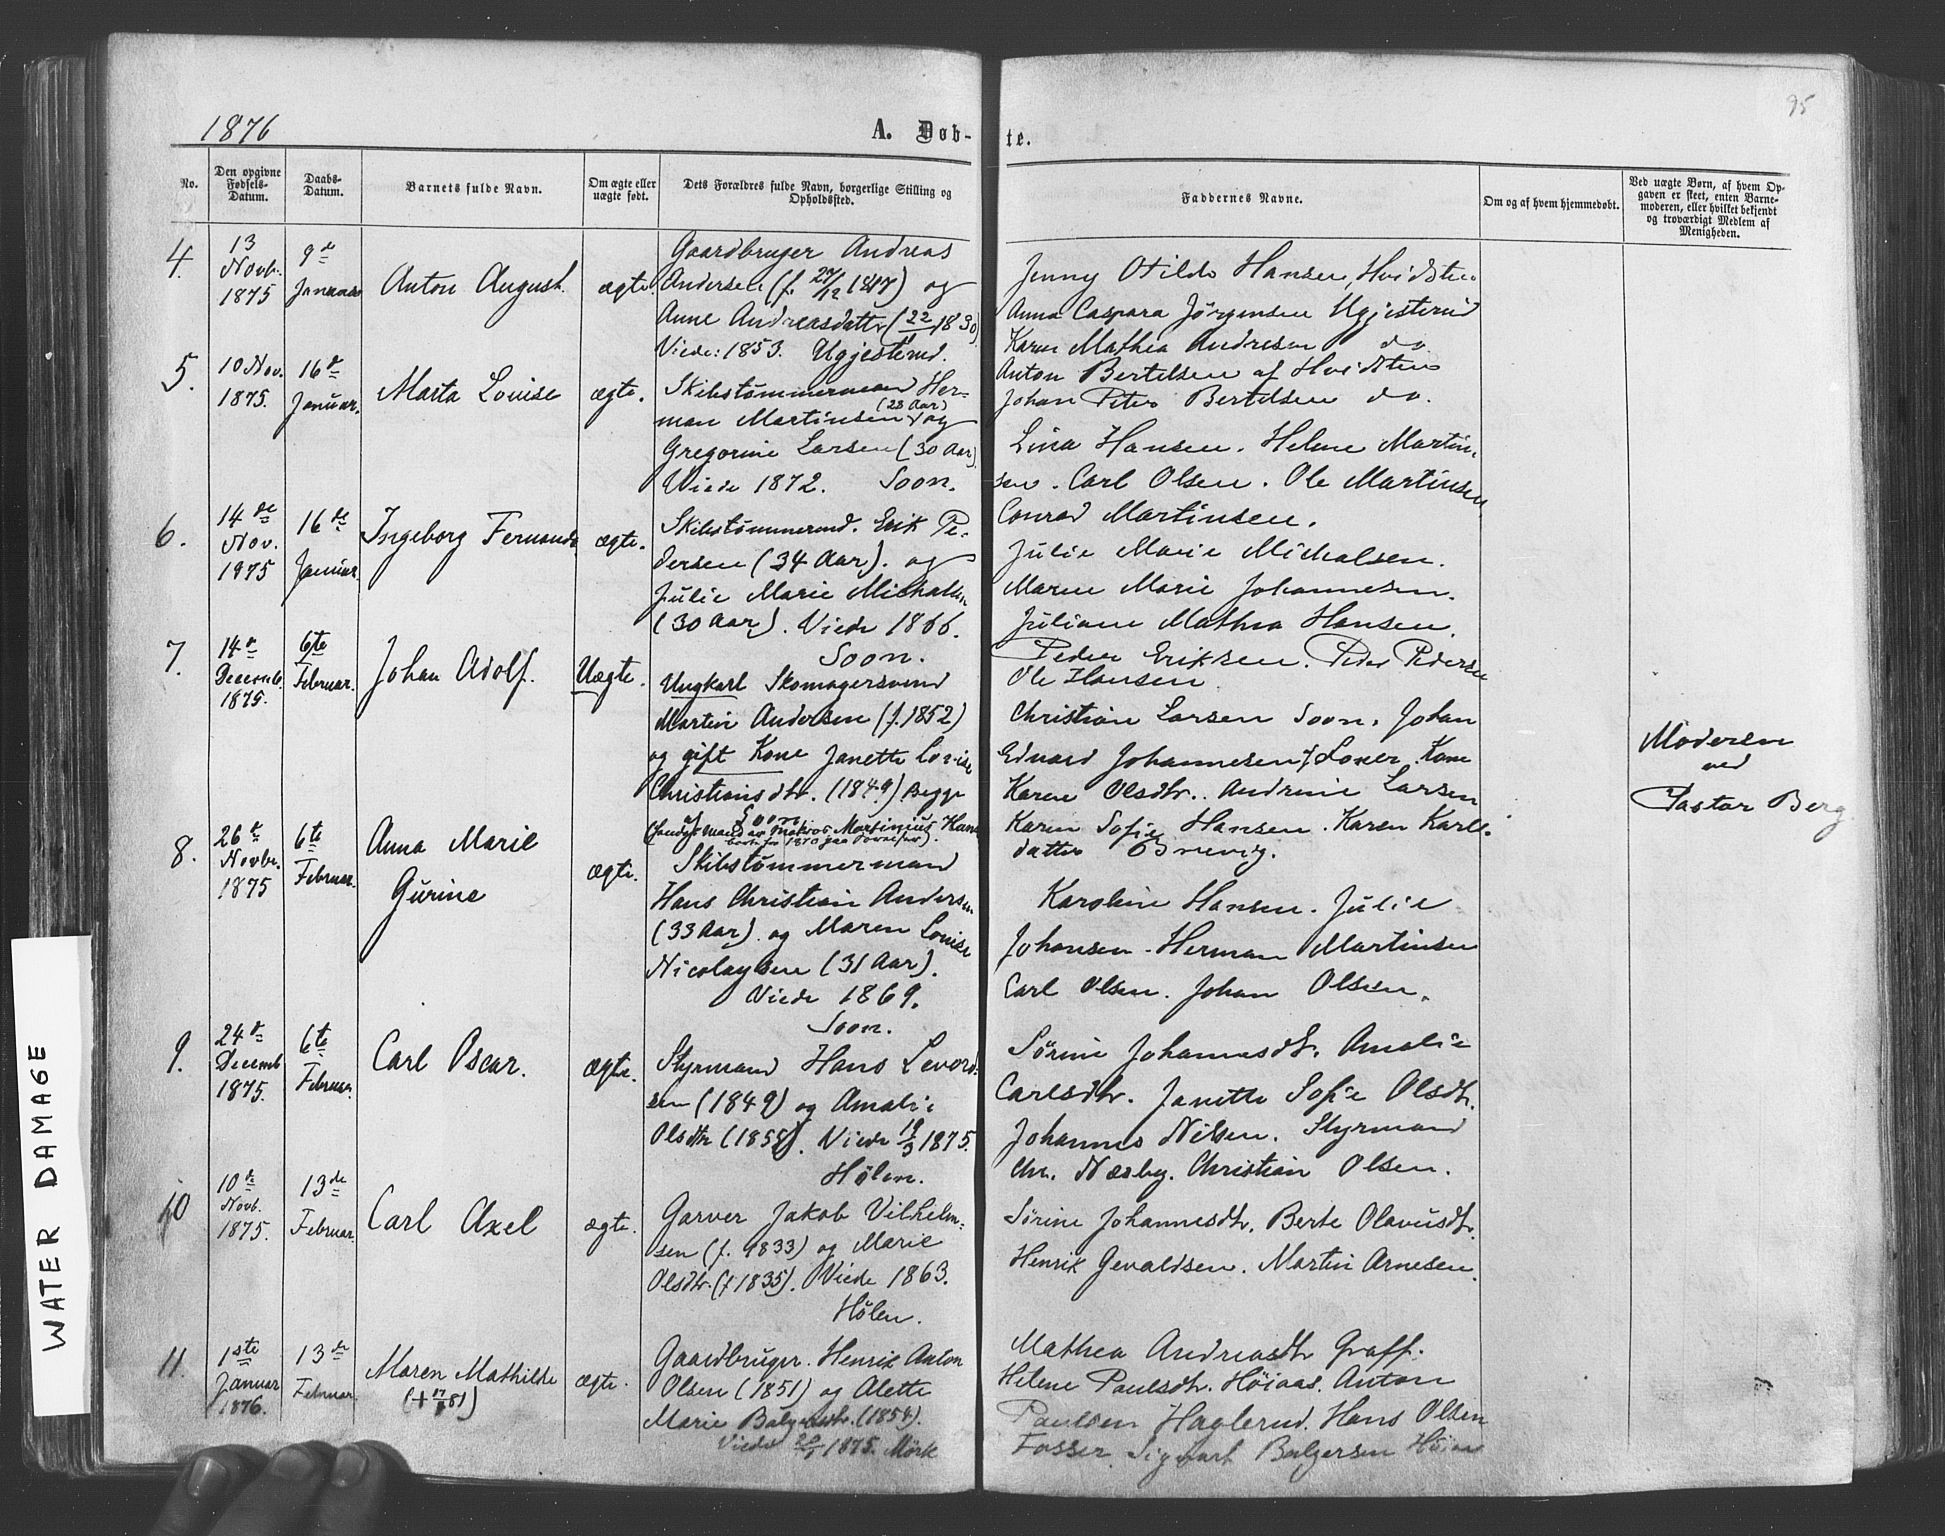 95
1876
A. Døb-
te.
No.
Den opgivne Fødsels-Datum.
Daabs-Datum.
Barnets fulde Navn.
Om ægte eller uægte født.
Dets Forældres fulde Navn, borgerlige Stilling og Opholdssted.
Faddernes Navne.
Om og af hvem hjemmedøbt.
Ved uægte Børn, af hvem Op-
gaven er skeet, enten Barne-
moderen, eller hvilket bekjendt
og troværdigt Medlem af
Menigheden.
4.
13
Novb.
1875
9de
Januar
Anton August.
ægte.
Gaardbruger Andreas
Andersen (f. 27/12 1817) og
Anne Andreasdatter
Viede: 1853. Ugjesterud.
Jenny Otilde Hansen, Hvidsten
Anna Caspara Jørgensen Ugjesterud
Karen Mathea Andresen do
Anton Bertelsen af Hvidsten
Johan Peter Bertelsen do.
5.
10 Nov.
1875.
16d
Januar.
Marta Louise
ægte.
Skibstømmermand Her-
man Martinsen (28 Aar) og
Gregorine Larsen (30 Aar)
Viede 1872. Soon.
Lina Hansen. Helene Martin-
sen. Carl Olsen. Ole Martinsen
Conrad Martinsen.
6.
14de
Nov.
1975
16de
Januar.
Ingeborg Fernanda
ægte.
Skibstømmermd. Erik Pe-
dersen (34 Aar). og
Julie Marie Michalsen
(30 Aar). Viede 1866.
Soon.
Julie Marie Michalsen.
Maren Marie Johannesen.
Juliane Mathea Hansen.
Peder Eriksen. Peder Pedersen
Ole Hansen
7.
14d
Decemb.
1875.
6te
Februar.
Johan Adolf.
Uægte.
Ungkarl Skomagersvend
Martin Andersen (f. 1852)
og gift Kone Janette Lovise
Christiansdtr. (1849) Begge
af Soon
Christian Larsen Soon. Johan
Eduard Johannesen Kone
Karen Olsdtr. Andrine Larsen
Karen Sofie Hansen. Karen Karls-
datter Brevig.
Moderen
ved
Pastor Berg
8.
26d
Novbr.
1875
6te
Februar.
Anna Marie
Gurine
ægte.
Skibstømmermand
Hans Christian Andersen
(33 Aar) og Maren Louise
Nicolaysen (31 Aar).
Viede 1869.
Soon.
Karoline Hansen. Julie
Johansen. Herman Martinsen
Carl Olsen. Johan Olsen.
9.
24d
Decemb
1875.
6te
Februar.
Carl Oscar.
ægte.
Styrmand Hans Levord-
sen (1849) og Amalie
Olsdtr (1858). Viede 19/3 1875.
Hølen.
Sørine Johannesdtr. Amalie
Carlsdtr. Janette Sofie Olsdtr.
Johannes Nilsen. Styrmand
Chr. Næsby. Christian Olsen.
10
10de
Novb.
1875.
13de
Februar.
Carl Axel
ægte.
Garver Jakob Vilhelm-
sen (f. 1833) og Marie
Olsdtr. (f 1835). Viede 1863.
Hølen.
Sørine Johannesdtr. Berte Olavusdtr.
Henrik Gevaldsen. Martin Arnesen.
11.
1ste
Januar
1876.
13de
Februar
Maren Mathilde
ægte.
Gaardbruger. Henrik Anton
Olsen (1851) og Alette
Marie (1854).
Viede 1875. Mørk
Mathea Andreasdtr Graff.
Helene Paulsdtr. Høiaas. Anton
Paulsen Haglerud. Hans Olsen
Fosser. Sigvart Bulgersen Høiaas
WATER DAMAGE